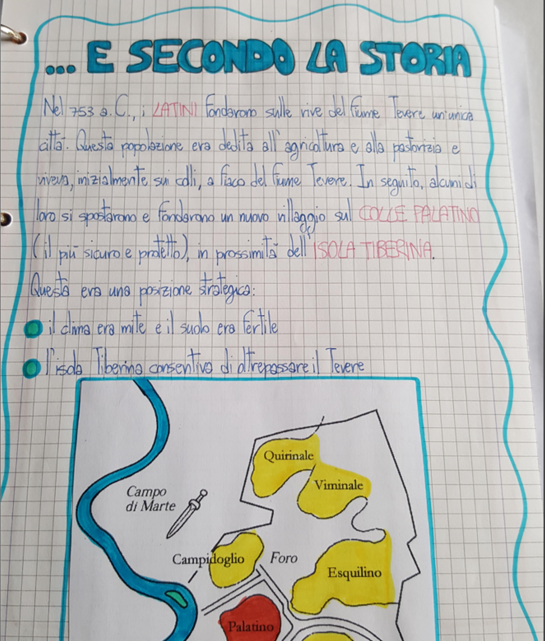 ... E SECONDO LA STORIA
Nel 753 a.C., i LATINI fondarono sulle rive del fiume Tevere un'unica
città. Questa popolazione era dedita all'agricoltura e alla pastorizia e
viveva, inizialmente sui colli, a fiaco del fiume Tevere. In seguito, alcuni di
loro si spostarono e fondarono un nuovo villaggio sul COLLE PALATINO
(il più sicuro e protetto), in prossimità dell'ISOLA TIBERINA.
Questa era una posizione strategica:
il clima era mite e il suolo era fertile
l'isola Tiberina consentiva di oltrepassare il Tevere
Quirinale
Viminale
Campo
di Marte
Campidoglio
Foro
Esquilino
Palatino